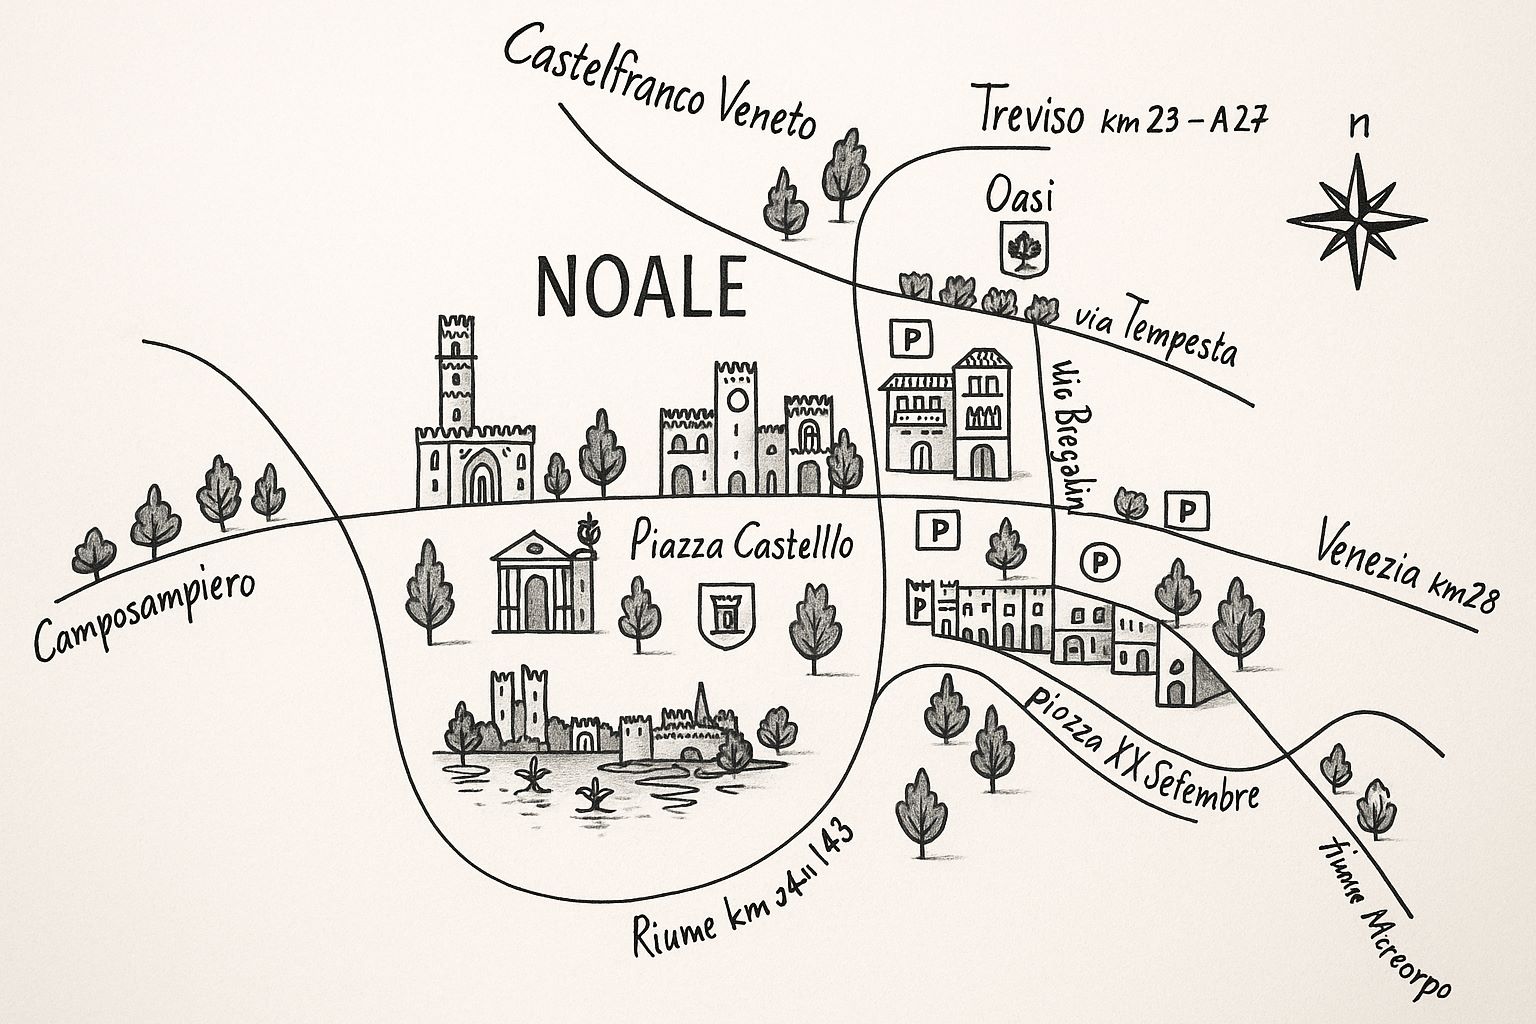 Castelfranco Veneto
Treviso km 23 – A27
n
Oasi
NOALE
P
via Tempesta
via Bregalin
P
P
Piazza Castelllo
P
Venezia km28
Camposampiero
P
piozza XX Sefembre
Riume km
143
fiume Micreorpo